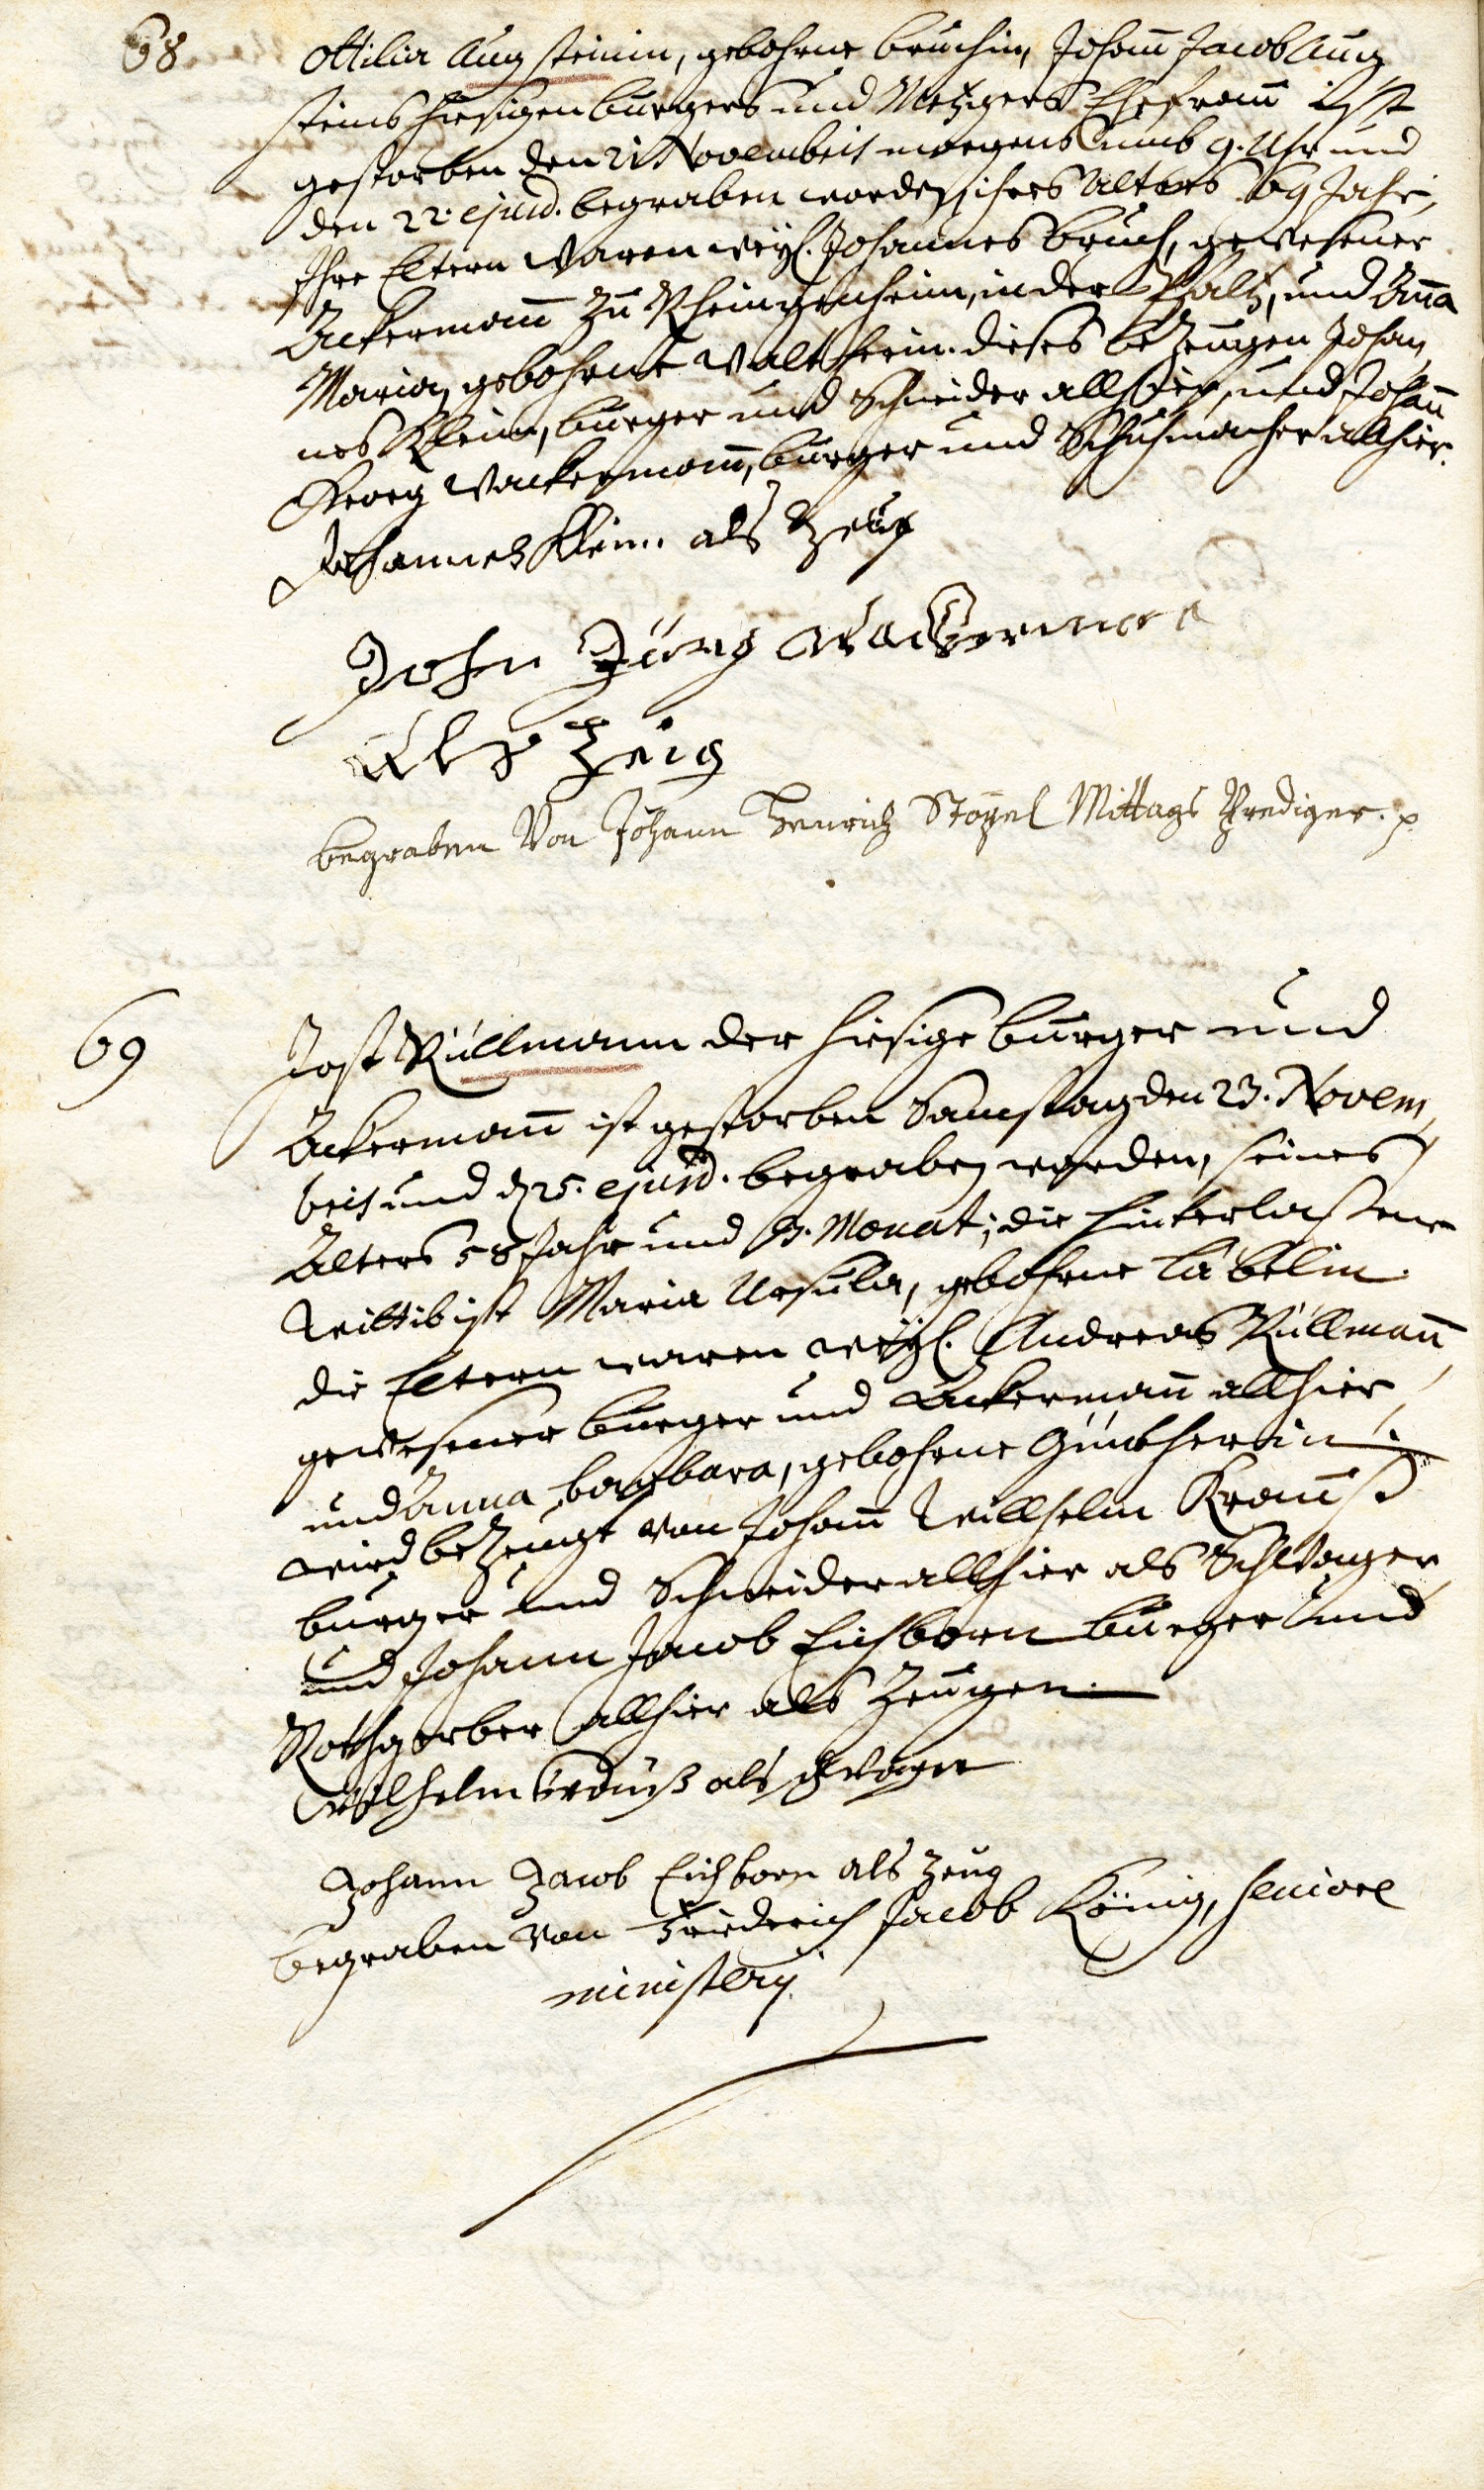 68
Ottilia Augsteinin, gebohrne Bruchin, Johann Jacob Aug
steins hiesigen burgers und Metzgers Ehefrau ist
gestorben den 21 Novembris morgens umb 9. Uhr und
den 22. ejusd. begraben worden, ihres Alters 69 Jahr,
Ihre Eltern waren weyl. Johannes Bruch, gewesener
Ackermann zu Rheingenheim, in der Pfaltz, und Anna
Maria, gebohrne Waltherin. dieses bezeugen Johan,
nes Klein, burger und Schneider allhier, und Johann
Georg Wackermann, burger und Schuhmacher allhier.
Johannes Klein. als Zeug
John Jürg Wackerman
Als Zeig
begraben Von Johann Henrich Mittags Prediger. p.
69
Jost Rüllmann der hiesige burger und
Ackermann ist gestorben Samstag den 23. Novem,
bris und d 25. ejusd. begraben worden, seines
Alters 58 Jahr und 3. Monat; die hinterlaßene
Wittib ist Maria Ursula, gebohrne
die Eltern waren weyl. Andreas Rüllmann
gewesener burger und Ackermann allhier,
und Anna barbara, gebohrne Güntherin.
wird bezeugt von Johann Willhelm Krauß
burger und Schneider allhier als Schwager
und Johann Jacob Eichborn burger und
Rothgerber allhier als Zeugen.
Wilhelm Krauß als schwager
Johann Jacob Eichborn als Zeug
begraben von Friederich Jacob König, seniore
ministerij.